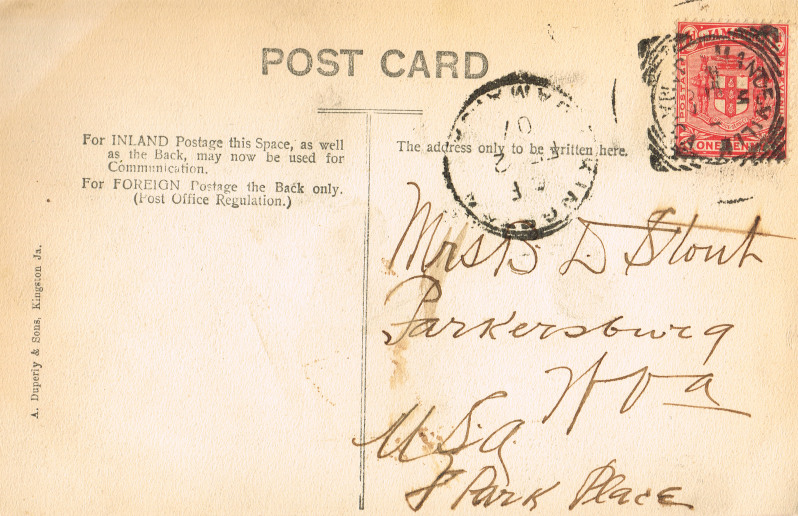 POST CARD
For INLAND Postage this Space, as well
as the Back, may now be used for
Communication.
For FOREIGN Postage the Back only.
(Post Office Regulation.)
The address only to be written here.
A. Duperly & Sons, Kingston Ja.
JAMAICA
ONE PENNY
MANDEVILLE
JAMAICA
KINGSTON
07
Mrs B. D Stout
Parkersburg
W Va
U.S.A
8 Park Place